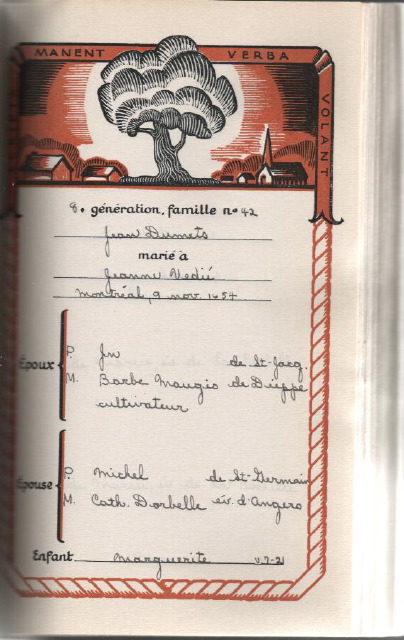 MANENT VERBA VOLANT
8e génération, famille no 42
Jean Dumets
marié à
Jeanne Vedié
Montréal, 9 nov. 1654
Époux
P. Jn de St-Jacq.
M. Barbe Maugis de Dieppe
cultivateur
Épouse
P. Michel de St-Germain
M. Cath. Dorbelle év. d'Angers
Enfant Marguerite v.7-21